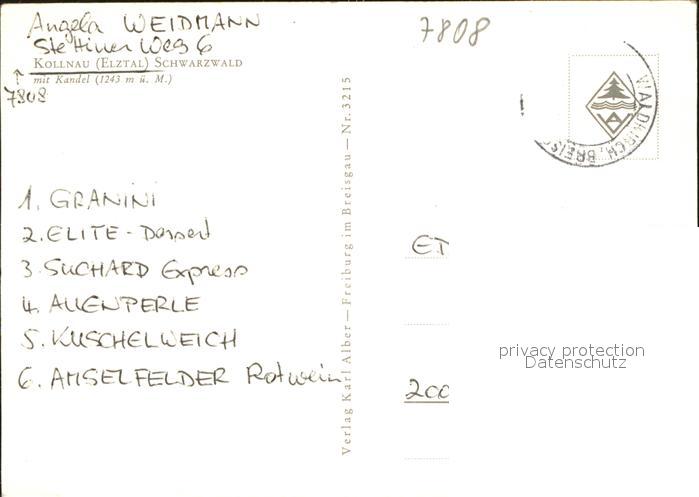 Angela WEIDMANN
Stettiner Weg 6
KOLLNAU (ELZTAL) SCHWARZWALD
mit Kandel (1243 m ü. M.)
7808
1. GRANINI
2. ELITE - Dessert
3. SUCHARD Express
4. AUENPERLE
5. KUSCHELWEICH
6. AMSELFELDER Rotwein
Verlag Karl Alber — Freiburg im Breisgau — Nr. 3215
7808
WALDKIRCH, BREISG
ET
200
privacy protection
Datenschutz